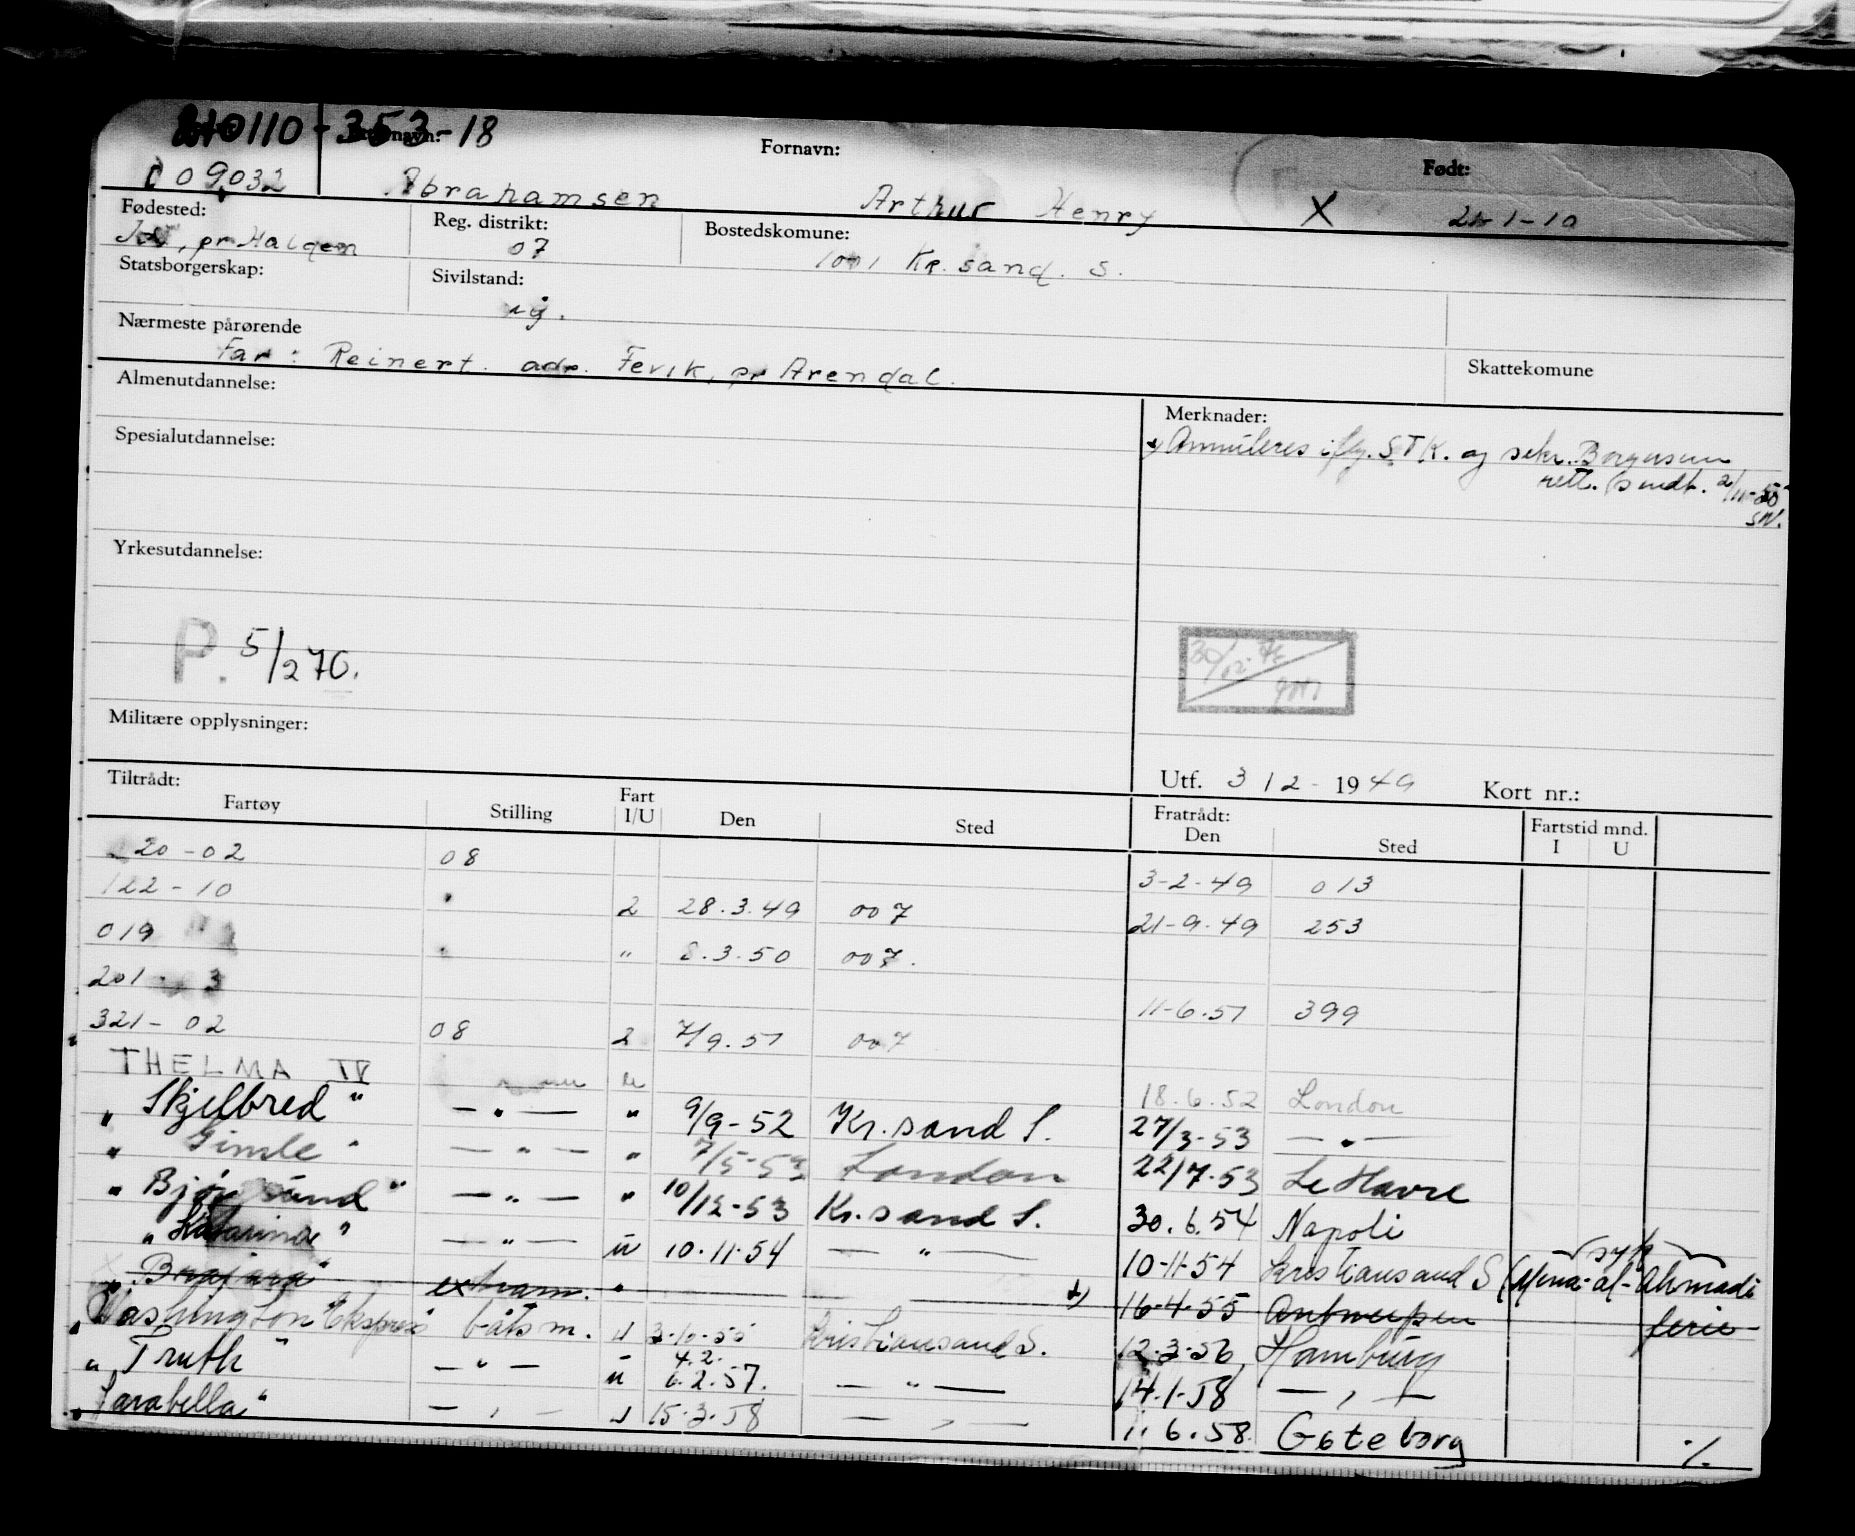 210110-353-18
Etternavn: Fornavn: Født:
009032 Abrahamsen Arthur Henry X 21-1-10
Fødested: Reg. distrikt: Bostedskomune:
pr Halden 07 1001 Kr. sand. S.
Statsborgerskap: Sivilstand:
ug.
Nærmeste pårørende
Far: Reinert. adr. Fevik, pr Arendal. Skattekomune
Almenutdannelse: Merknader:
Annuleres ifлg. STK. og sekr.
Spesialutdannelse:
rett. 2/11-55
SN.
Yrkesutdannelse:
P. 5/270.
Militære opplysninger:
Utf. 312-1949 Kort nr.:
Tiltrådt: Fratrådt: Fartstid mnd.
Fartøy Stilling Fart I/U Den Sted Den Sted I U
20-02 08 3-2-49 013
122-10 " 2 28.3.49 007 21-9-49 253
019 " " 8.3.50 007.
201- 3 11-6.51 399
321-02 08 2 7/9.51 007
THELMA IV 18.6.52 London
" Skjelbred" — " — " 9/9-52 Kr.sand S. 27/3-53 — " —
" Gimle " — " — " 7/5-53 London 22/7-53 Le Havre
" Bjørgsund" — " — " 10/12-53 Kr.sand S. 30.6.54 Napoli
" Katarina" — " — u 10.11.54 — " — 10-11-54 Kristiansand S (Mena-al-Ahmadi syk
" ekstram. " 16-4-55 Antwerpen ferie
" Washington Ekspress båtsm. u 3-10-55 Kristiansand S. 12.3-56 Hamburg
" Truth" — " — u 4.2. 6.2.57. — " — 14.1.58 — " —
" Jarabella" — " — u 15.3.58 — " — 11.6.58. Gøteborg
./.